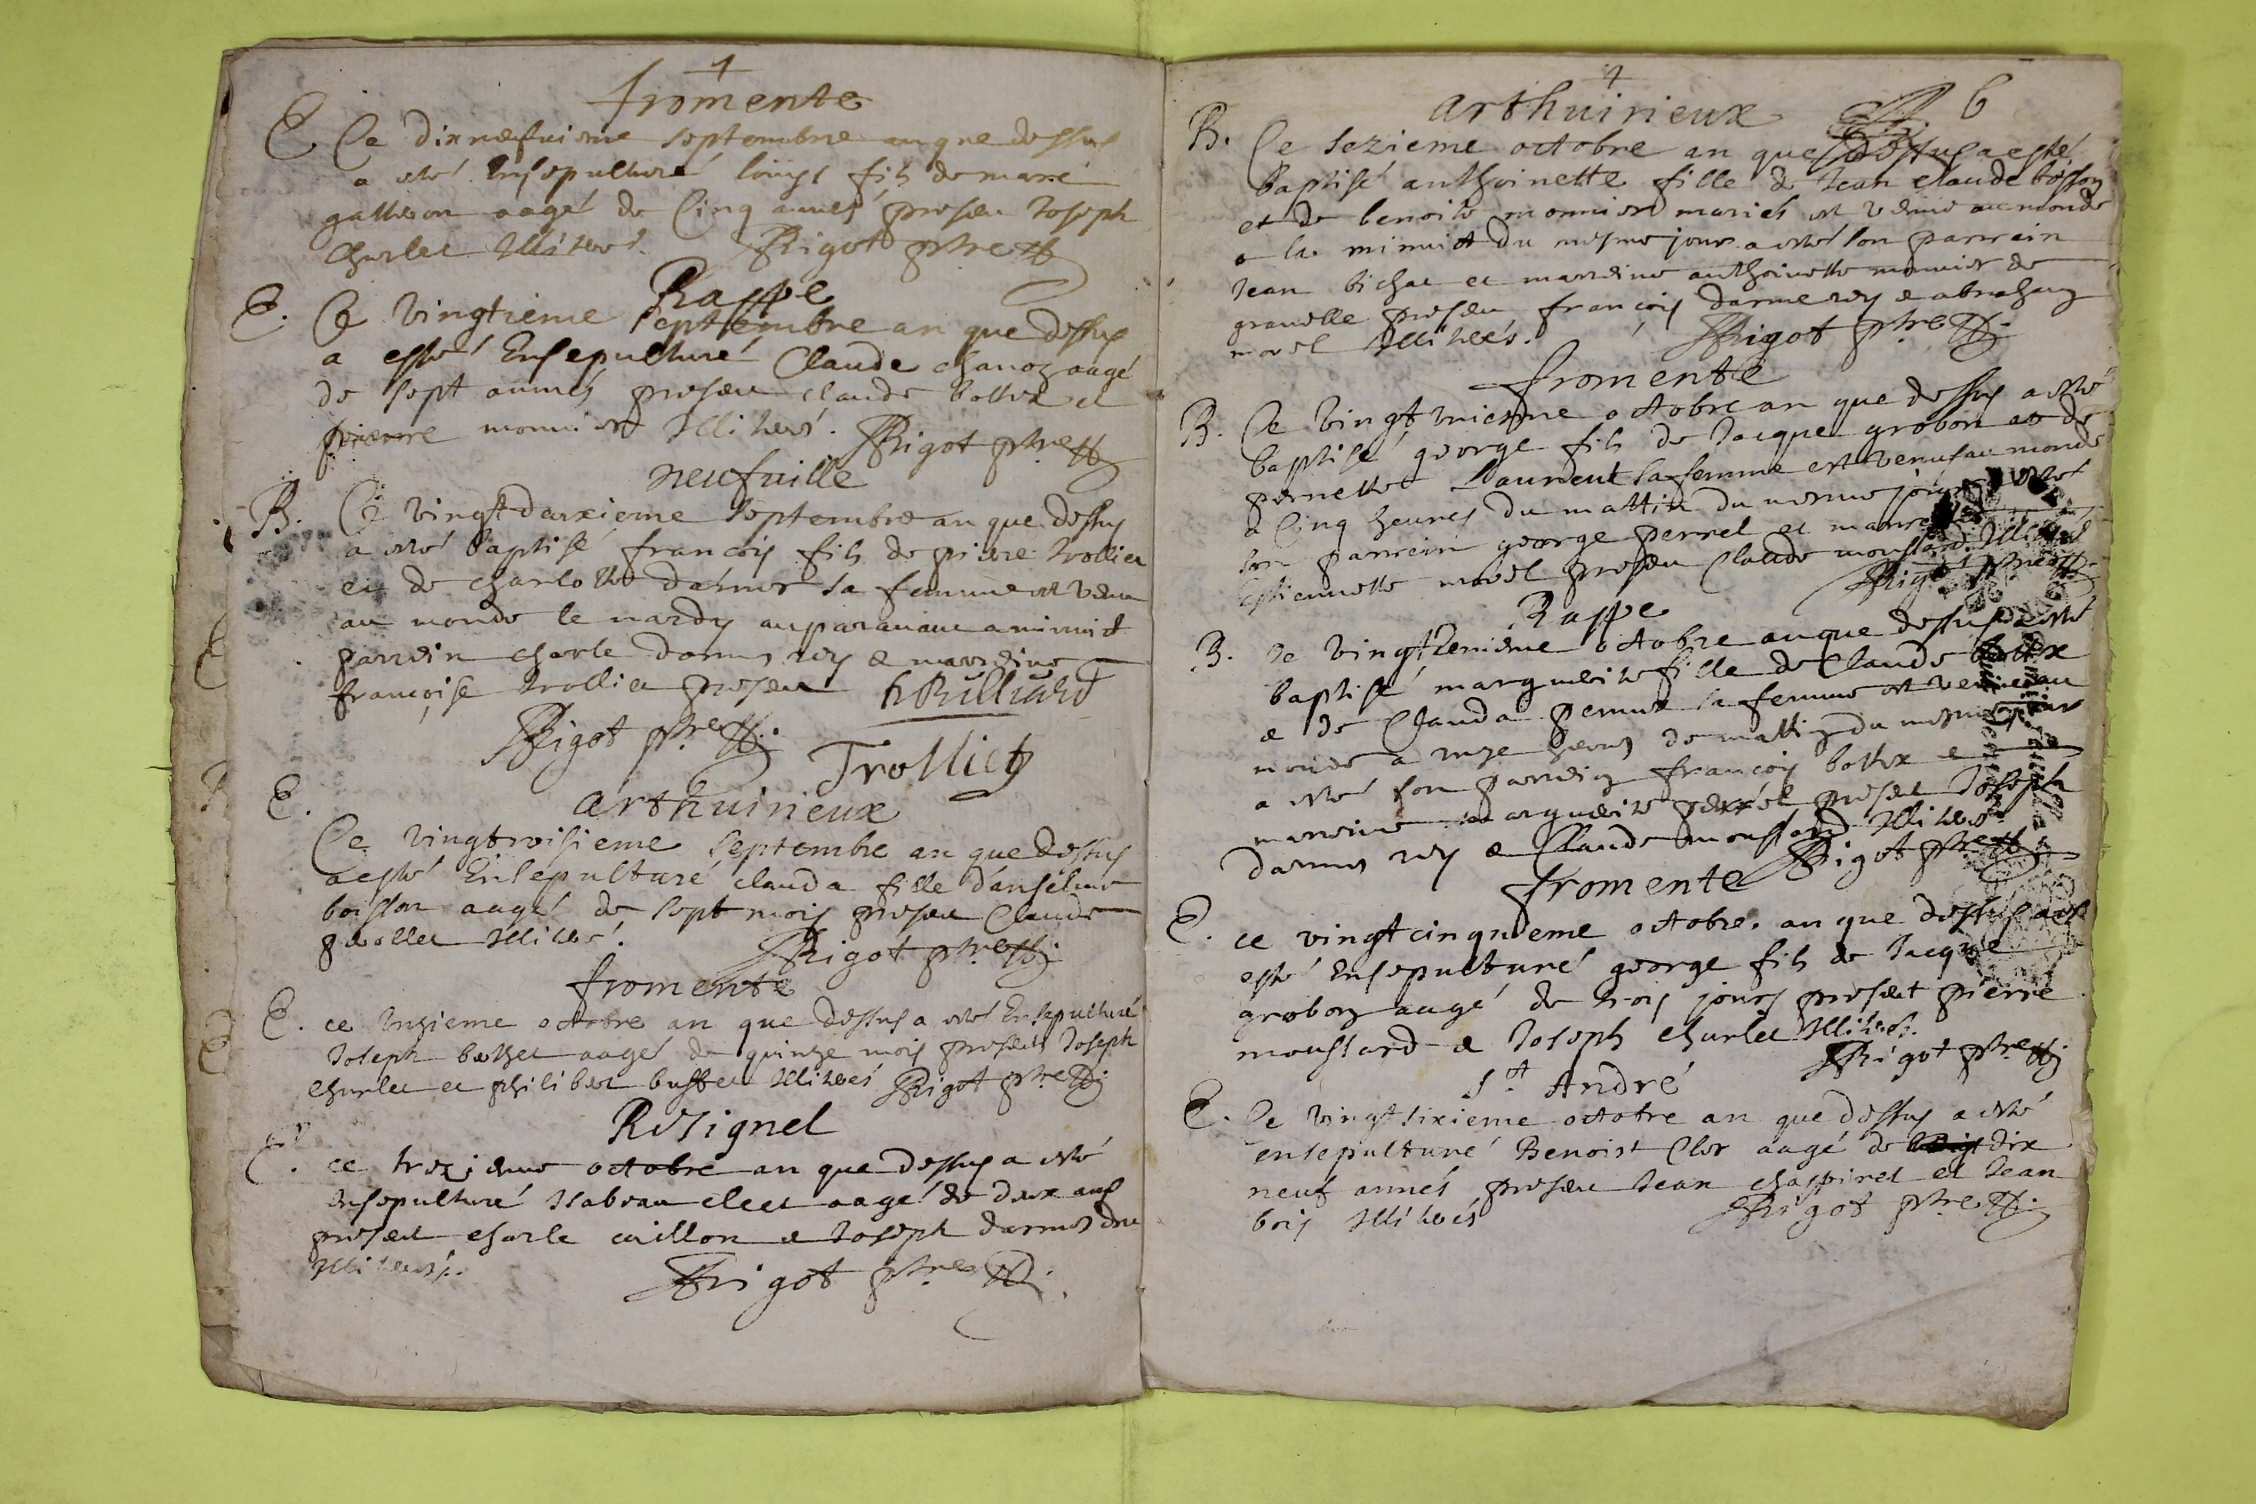 fromente
E. Ce dixneufuieme septembre an que dessus
a esté Ensepulturé louys fils de marc
galleon aagé de Cinq années presen Joseph
Charlet
Rigot ptre
Rappe
E. Ce vingtieme septembre an que dessus
a esté Ensepulturé Claude chanoz aagé
de sept années presen claude bottex et
pierre monnier
Rigot ptre
neufuille
B. Ce vingt deuxieme septembre an que dessus
a esté baptisé francois fils de pierre trollier
et de charlotte sa femme est venu
au monde le mardy auparauant a minuit
parrein charle et marreine
françoise trollier presen h Rulliard
Rigot ptre
Trolliet
arthuirieux
E. Ce vingt troisieme septembre an que dessus
a esté Ensepulturé clauda fille d'anselme
boisson aagé de sept mois presen Claude
Rigot ptre
fromente
E. ce unzieme octobre an que dessus a esté Ensepulturé
Joseph aagé de quinze mois presens Joseph
Charlet et philibert
Rigot ptre
Resignel
E. ce trezieme octobre an que dessus a esté
ensepulturé Isabeau aagé de deux ans
presen charle et Joseph
Rigot ptre
6
arthuirieux
B. Ce sezieme octobre an que dessus a esté
baptisé anthoinette fille de Jean claude boisson
et de benoite monnier mariés est venue au monde
a la minuit du mesme jour a esté son parrein
Jean bichat et marreine anthoinette monnier de
grauelle presen françois et abraham
morel
Rigot ptre
fromente
B. Ce vingt uniesme octobre an que dessus a esté
baptisé george fils de Jacque grobon et de
pernette Laurent sa femme est venu au monde
a Cinq heures du mattin du mesme jour a esté
son parrein george perret et
Estiennette morel presen Claude moussard
Rigot ptre
Rappe
B. Ce octobre an que dessus a esté
baptisé marguerite fille de Claude bottex
et de Clauda sa femme est venue au
monde a unze heures de mattin du mesme jour
a esté son parrein françois bottex et
marreine marguerite perret presen Joseph
et Claude moussard
Rigot ptre
fromente
E. ce vingt cinquieme octobre an que dessus a
esté Ensepulturé george fils de Jacque
grobon aagé de trois jours presen pierre
moussard et Joseph Charlet
Rigot ptre
St André
E. Ce vingt sixieme octobre an que dessus a esté
ensepulturé Benoist Cler aagé de dix
neuf années presen Jean chaspirel et Jean
bois
Rigot ptre